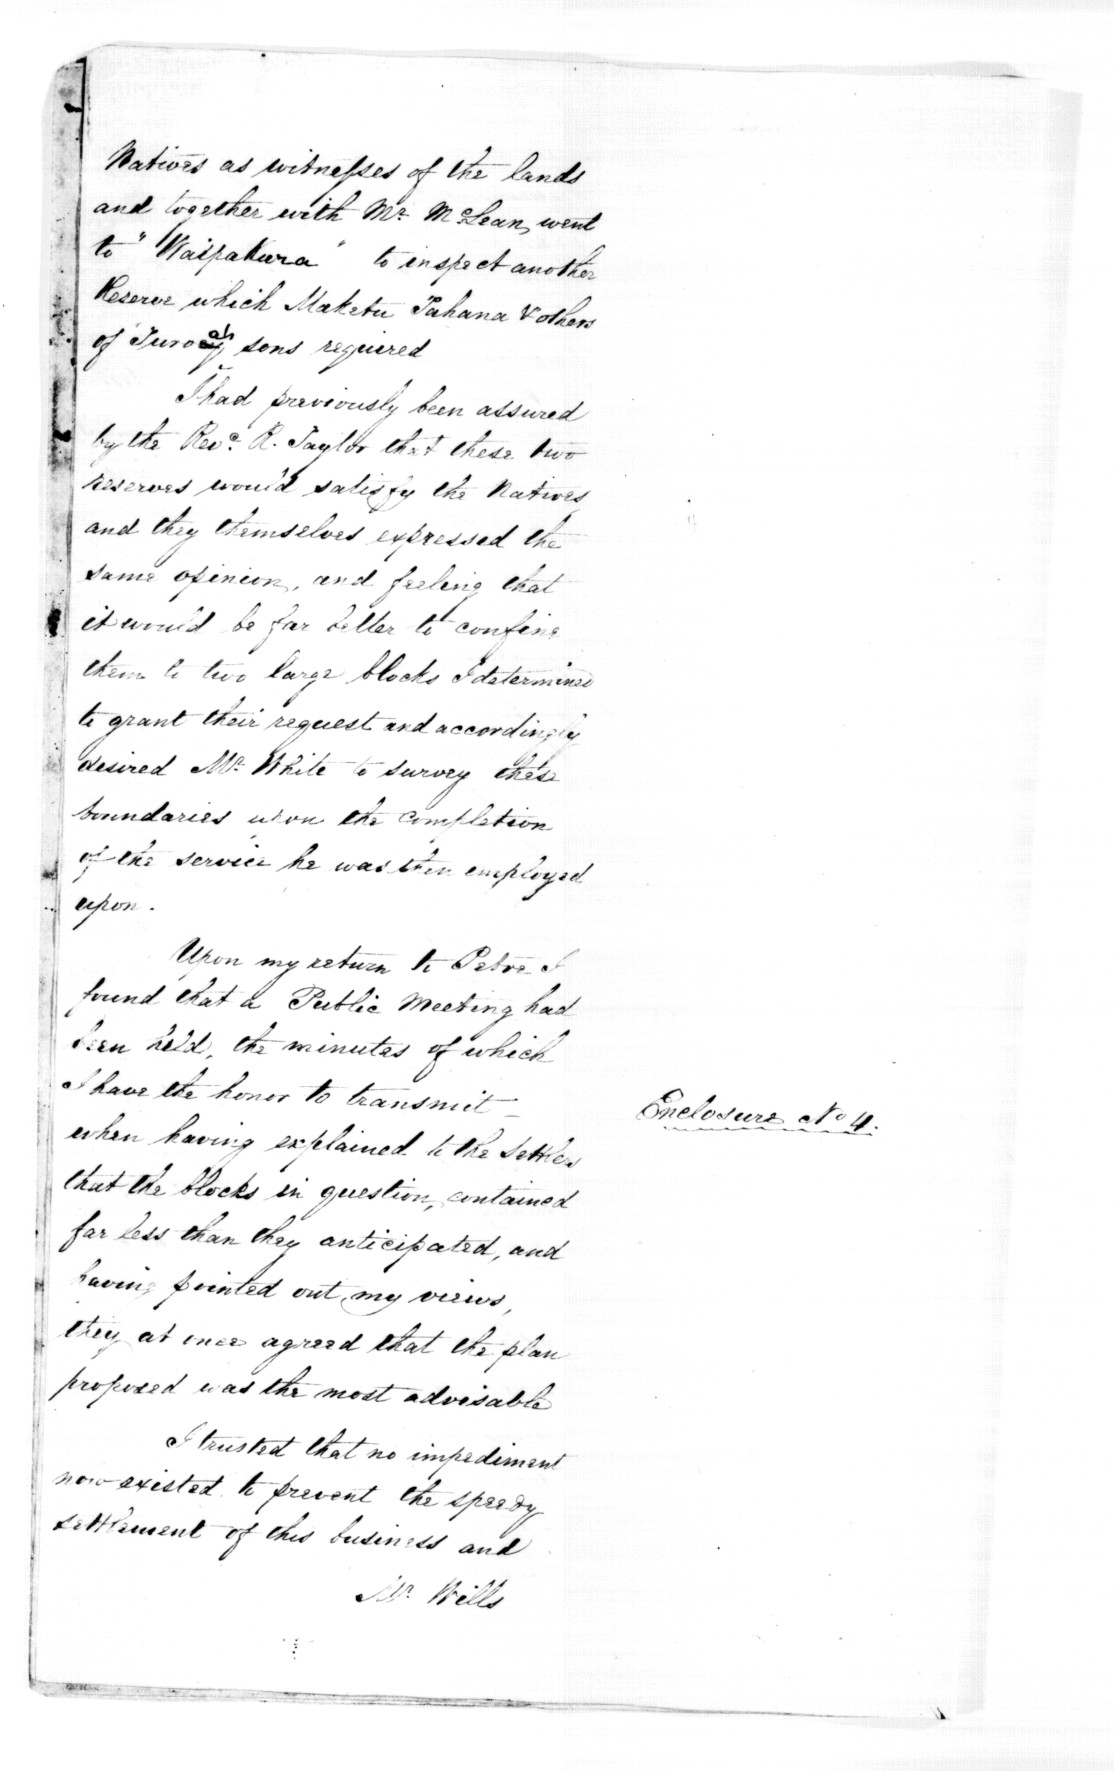 Natives as witnesses of the lands
and together with Mr. McLean, went
to "Waipakura" to inspect another
Reserve which Maketu Pahana & others
of sons required
I had previously been assured
by the Revd. R. Taylor that these two
reserves would satisfy the Natives
and they themselves expressed the
same opinion, and feeling that
it would be far better to confine
them to two large blocks I determined
to grant their request and accordingly
desired Mr. White to survey these
boundaries upon the completion
of the service he was then employed
upon.
Upon my return to Petre I
found that a Public Meeting had
been held, the minutes of which
I have the honor to transmit –
Enclosure No 4.
when having explained to the Settlers
that the blocks in question, contained
far less than they anticipated, and
having pointed out my views,
they at once agreed that the plan
proposed was the most advisable
I trusted that no impediment
now existed to prevent the speedy
settlement of this business and
Mr. Wills